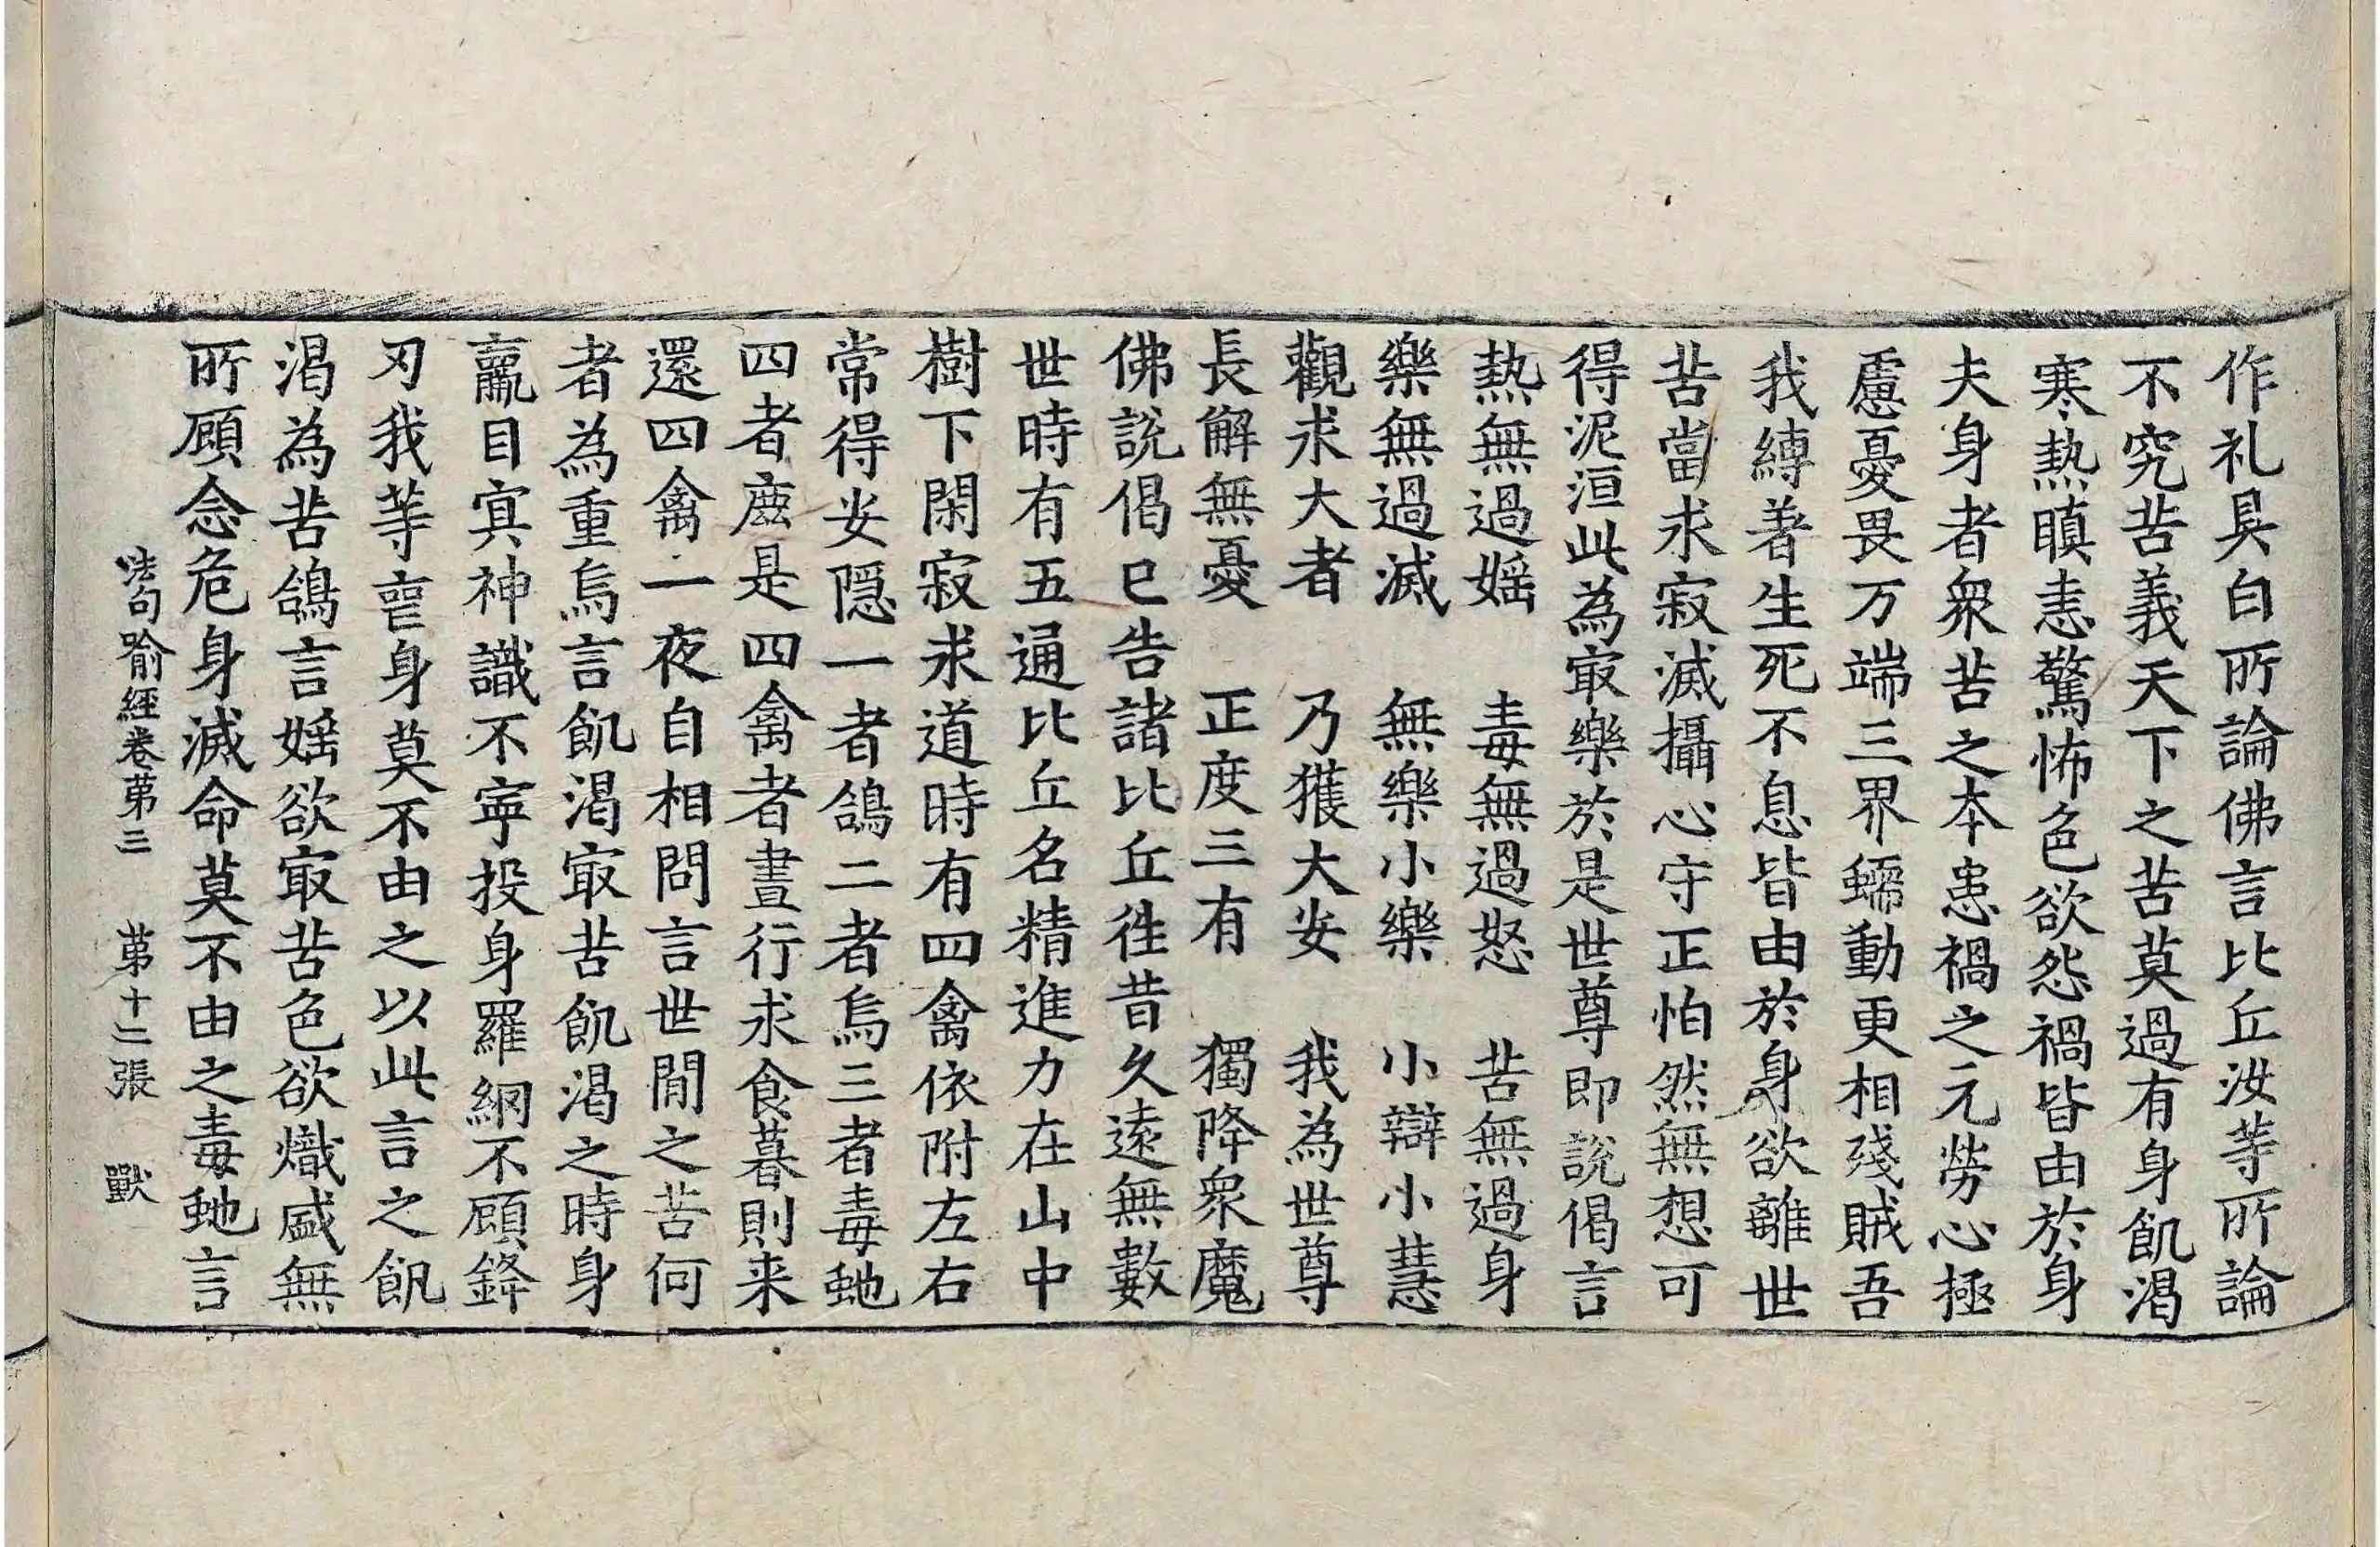 作礼具白所論佛言比丘汝等所論
不究苦義天下之苦莫過有身飢渴
寒熱瞋恚驚怖色欲怨禍皆由於身
夫身者衆苦之本患禍之元勞心極
慮憂畏万端三界蠕動更相殘賊吾
我縛著生死不息皆由於身欲離世
苦當求寂滅攝心守正怕然無想可
得泥洹此為㝡樂於是世尊即說偈言
熱無過婬　毒無過怒　苦無過身
樂無過滅　無樂小樂　小辯小慧
觀求大者　乃獲大安　我為世尊
長解無憂　正度三有　獨降衆魔
佛說偈已告諸比丘往昔久遠無數
世時有五通比丘名精進力在山中
樹下閑寂求道時有四禽依附左右
常得安隱一者鴿二者烏三者毒虵
四者鹿是四禽者晝行求食暮則来
還四禽一夜自相問言世間之苦何
者為重烏言飢渴㝡苦飢渴之時身
羸目冥神識不寧投身羅網不顧鋒
刃我等喪身莫不由之以此言之飢
渴為苦鴿言婬欲㝡苦色欲熾盛無
所顧念危身滅命莫不由之毒虵言
法句喻經卷第三　第十二張　獸